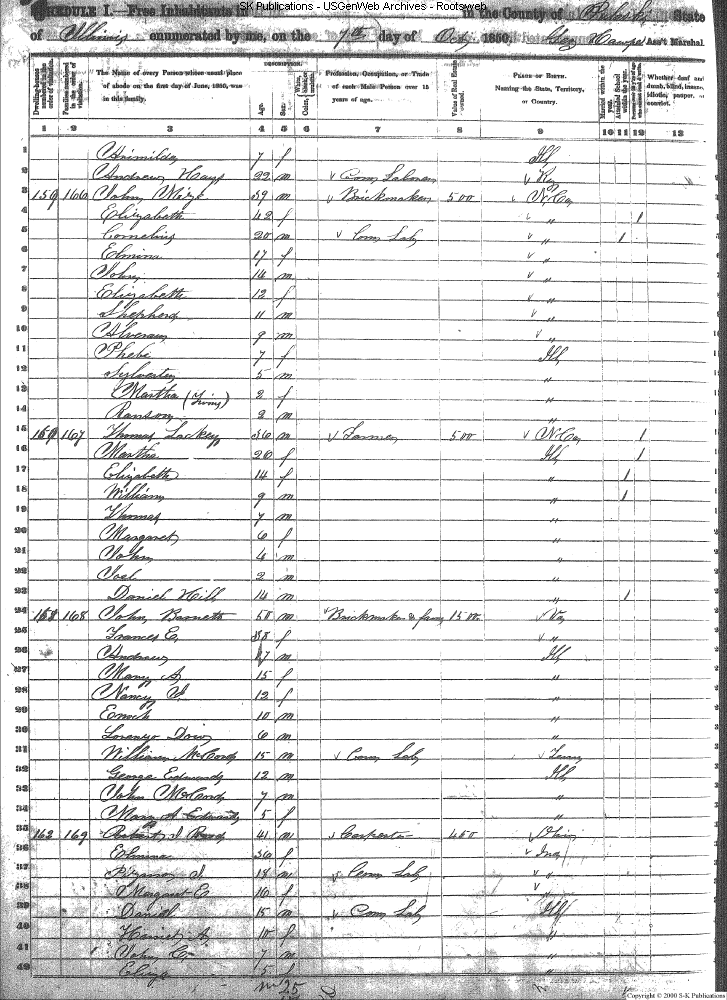 SK Publications - USGenWeb Archives - Rootsweb
SCHEDULE I.—Free Inhabitants in in the County of Pulaski State
of Illinois enumerated by me, on the 7th day of Oct 1850. Ass't Marshal
DESCRIPTION.
Dwelling-houses numbered in the order of visitation. Families numbered in the order of visitation. The Name of every Person whose usual place of abode on the first day of June, 1850, was in this family. Age. Sex. Color Profession, Occupation, or Trade of each Male Person over 15 years of age. Value of Real Estate owned. PLACE OF BIRTH. Naming the State, Territory, or Country. Married within the year. Attended School within the year. Whether deaf and dumb, blind, insane, idiotic, pauper, or convict.
1 2 3 4 5 6 7 8 9 10 11 12 13
1 7 f Ill
2 Andrew Hays 22 m Com Laborer Ky
3 159 166 John Mize 39 m Brickmaker 500 N Ca
4 Elizabeth 42 f " /
5 Cornelius 20 m Com Lab " /
6 Elmina 17 f "
7 John 14 m "
8 Elizabeth 12 f "
9 Shepherd 11 m "
10 9 m "
11 Phebe 7 f Ill
12 Sylvester 5 m "
13 Martha (Twins) 2 f "
14 Ransom 2 m "
15 167 Thomas Lackey 36 m Farmer 500 N Ca /
16 Martha 26 f Ill /
17 Elizabeth 14 f " /
18 William 9 m " /
19 Thomas 7 m "
20 Margaret 6 f "
21 John 4 m "
22 Joel 2 m "
23 Daniel Hill 14 m " /
24 168 168 John Barnett 50 m Brickmaker & farm 1500 Va
25 Frances E. 38 f "
26 Andrew 17 m Ill
27 Mary A 15 f "
28 Nancy J 12 f "
29 Enoch 10 m "
30 Lorenzo Dow 6 m "
31 William McCord 15 m Com Lab Tenn
32 George Edmunds 12 m Ill
33 John McCord 7 m "
34 Mary A Edwards 5 f "
35 162 169 Robert J 41 m Carpenter 400 Ohio
36 Elmina 36 f Ind
37 18 m Com Lab "
38 Margaret E 16 f "
39 Daniel 15 m Com Lab Ill
40 Harriet A 10 f "
41 John C 7 m "
42 Eliza 5 f "
m 25
Copyright © 2000 S-K Publications